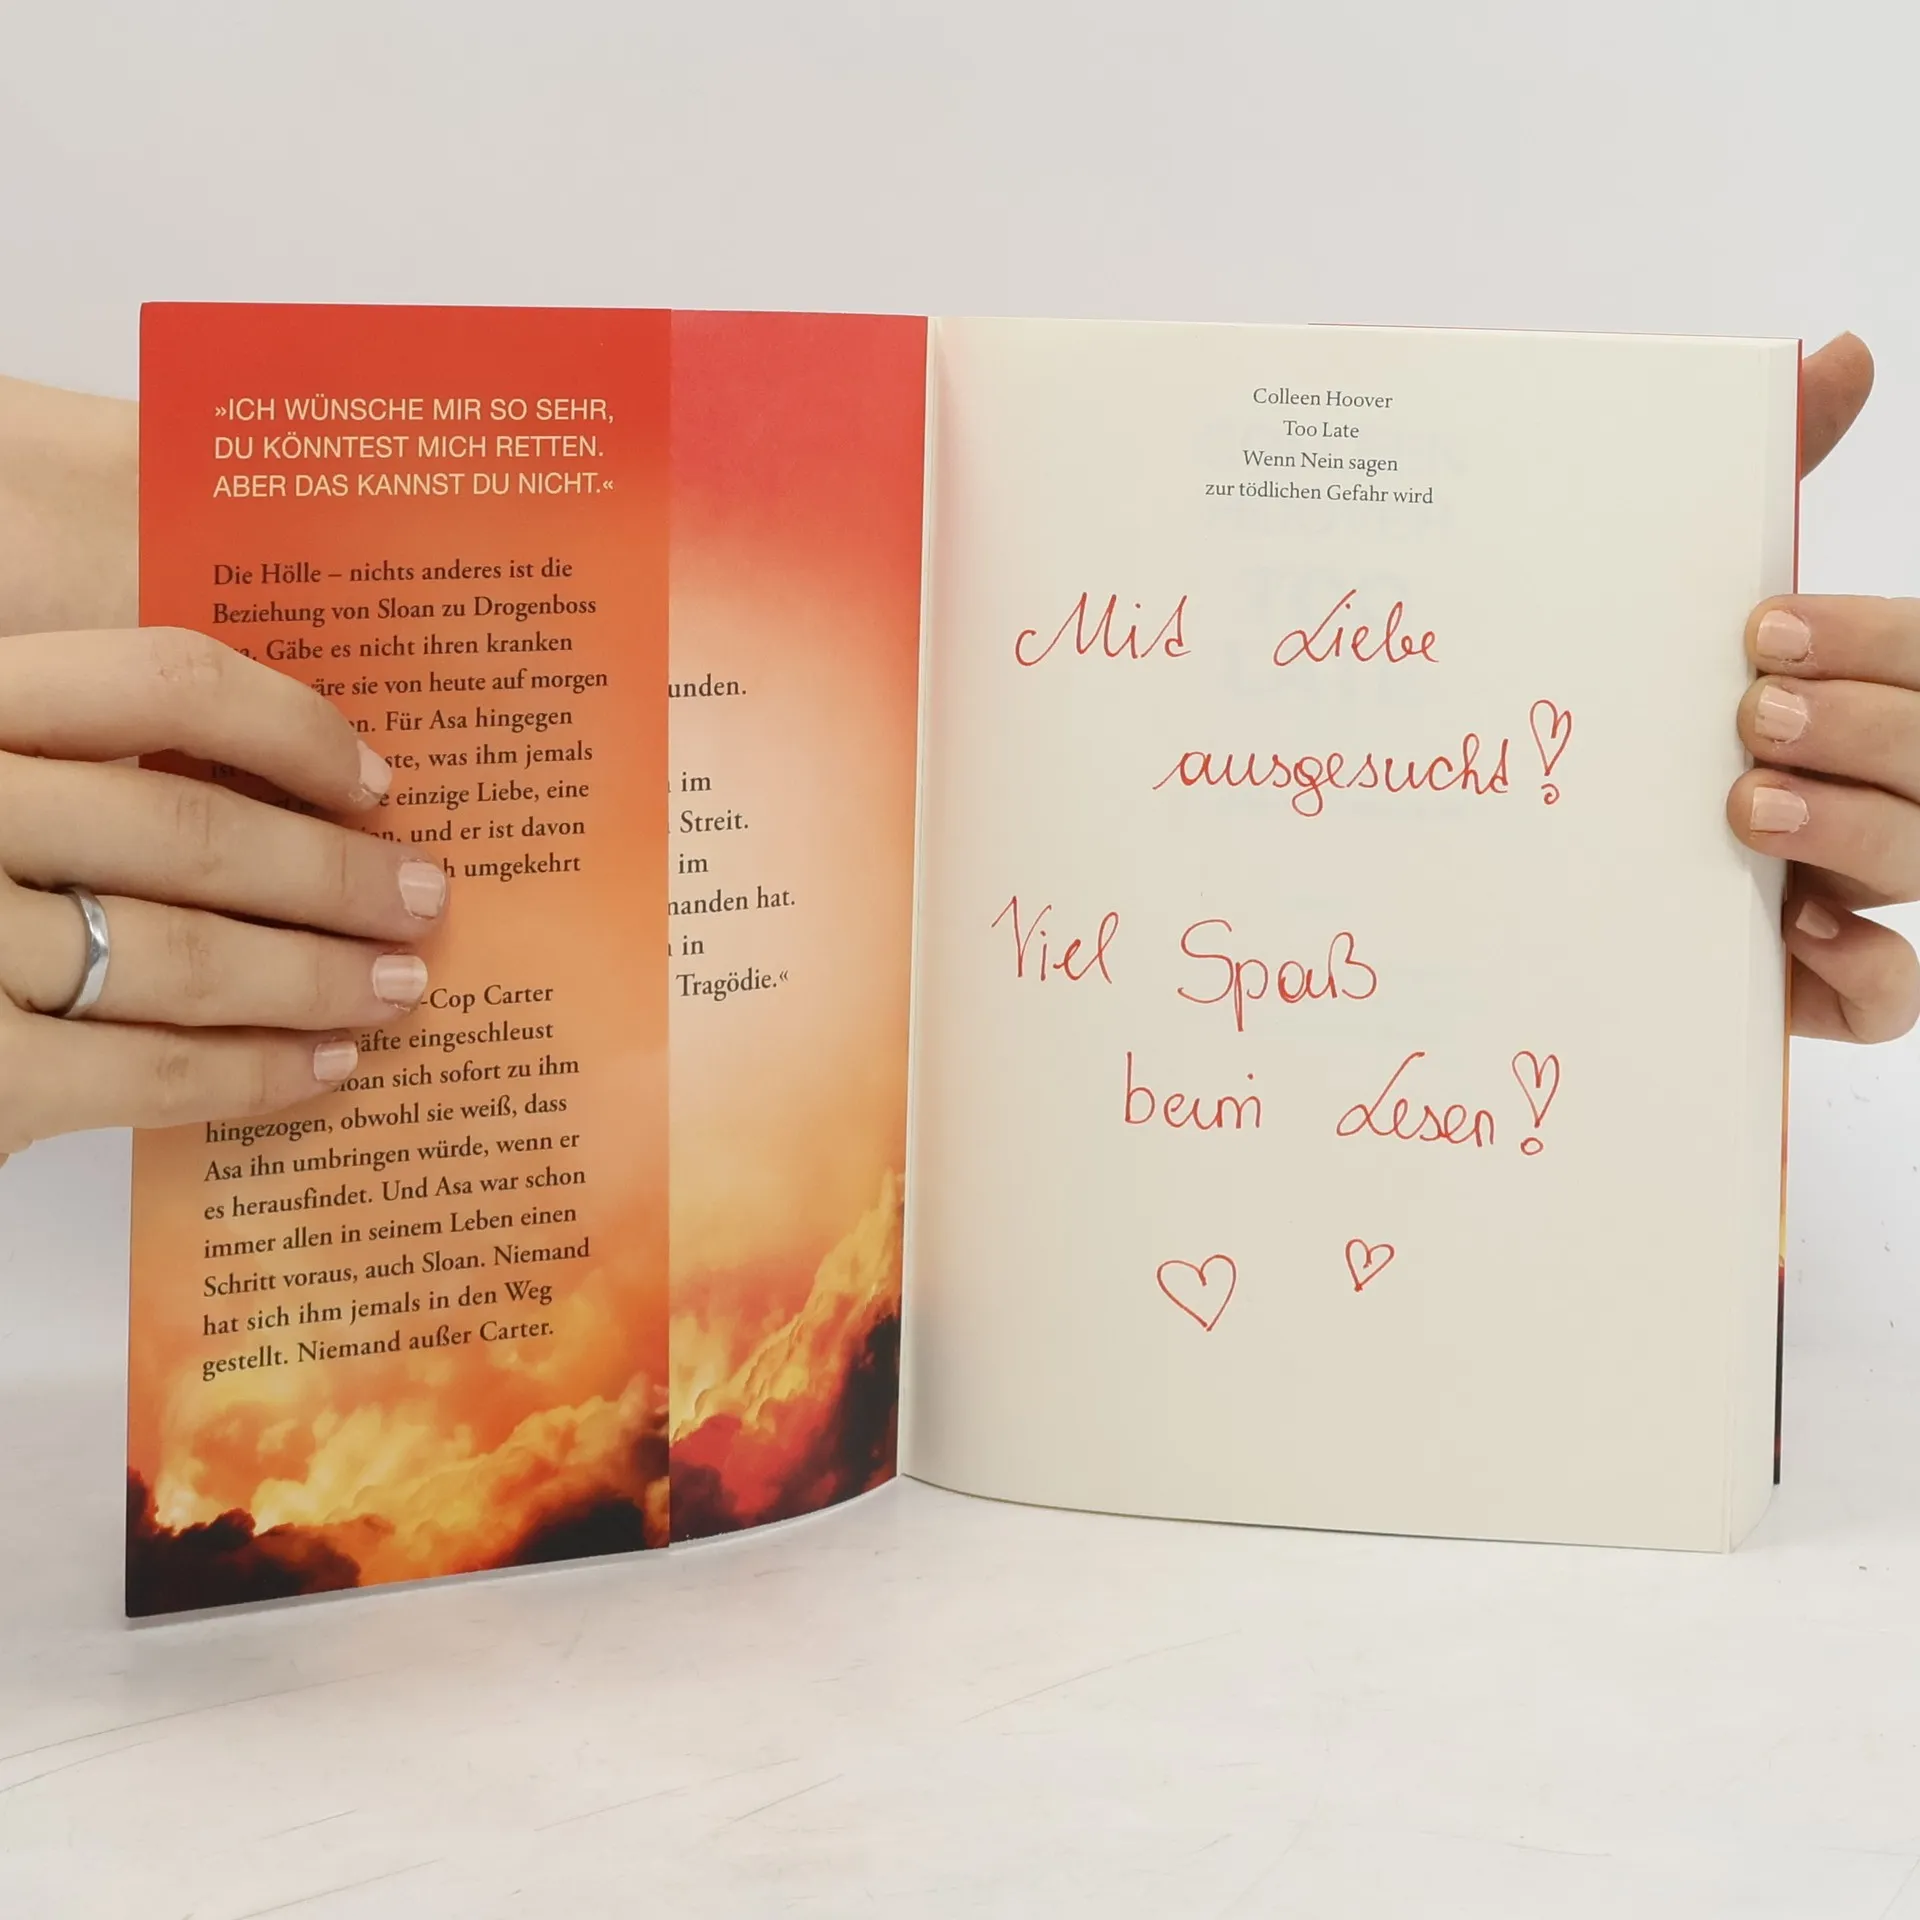 »ICH WÜNSCHE MIR SO SEHR,
DU KÖNNTEST MICH RETTEN.
ABER DAS KANNST DU NICHT.«
Die Hölle – nichts anderes ist die
Beziehung von Sloan zu Drogenboss
Gäbe es nicht ihren kranken
sie von heute auf morgen
Für Asa hingegen
was ihm jemals
einzige Liebe, eine
und er ist davon
umgekehrt
-Cop Carter
eingeschleust
sich sofort zu ihm
hingezogen, obwohl sie weiß, dass
Asa ihn umbringen würde, wenn er
es herausfindet. Und Asa war schon
immer allen in seinem Leben einen
Schritt voraus, auch Sloan. Niemand
hat sich ihm jemals in den Weg
gestellt. Niemand außer Carter.
im
Streit.
im
hat.
in
Tragödie.«
Colleen Hoover
Too Late
Wenn Nein sagen
zur tödlichen Gefahr wird
Mit Liebe
ausgesucht!
Viel Spaß
beim Lesen!